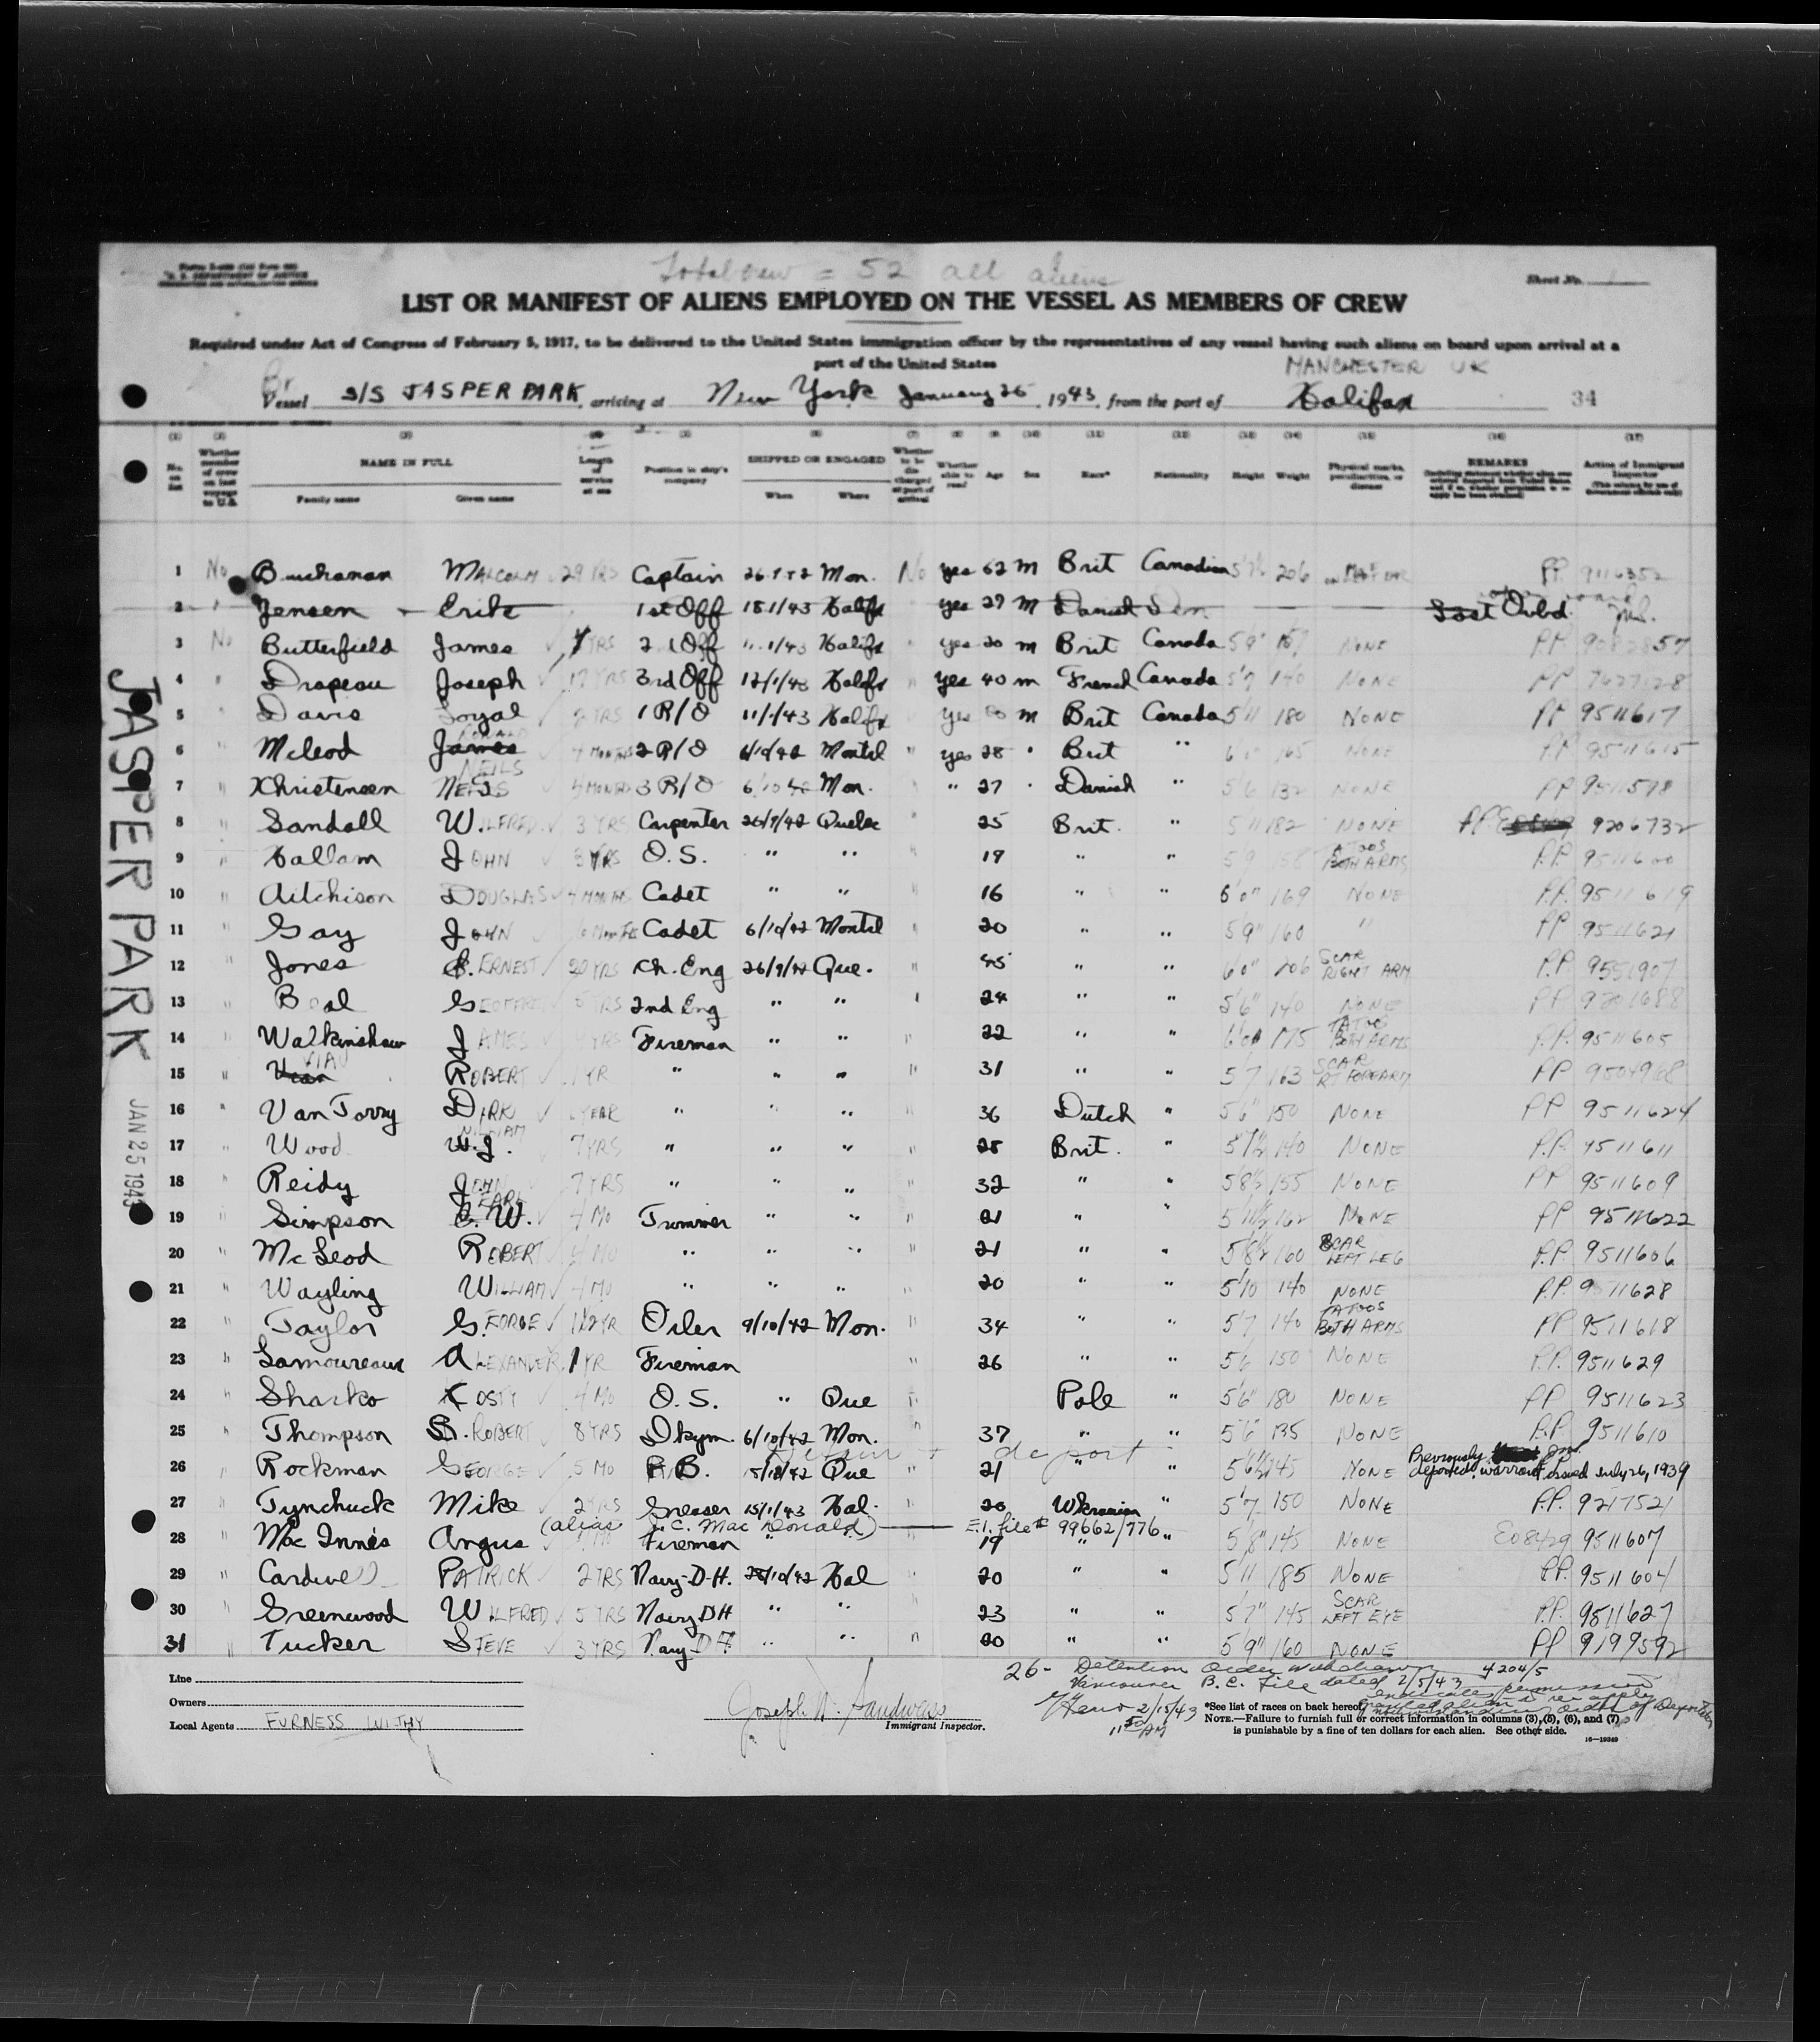 Total crew = 52 all aliens
Sheet No. 1
LIST OR MANIFEST OF ALIENS EMPLOYED ON THE VESSEL AS MEMBERS OF CREW
Required under Act of Congress of February 5, 1917, to be delivered to the United States immigration officer by the representatives of any vessel having such aliens on board upon arrival at a
port of the United States
MANCHESTER UK
Br
Vessel S/S JASPER PARK, arriving at New York January 25, 1943, from the port of Halifax 34
No. on list
Whether member of crew on last voyage to U.S.
NAME IN FULL
Family name Given name
Length of service at sea
Position in ship's company
SHIPPED OR ENGAGED
When Where
Whether to be discharged at port of arrival
Whether able to read
Age Sex Race* Nationality Height Weight
Physical marks, peculiarities, or disease
REMARKS
Action of Immigrant Inspector
1 No Buchanan MALCOLM 29 YRS Captain Mon. No yes 62 m Brit Canadian 206 PP 9116352
2 Jensen Erik 1st Off 18/1/43 Halifx yes 27 M Danish Lost Outbd.
3 No Butterfield James YRS Off Halifx yes 20 m Brit Canada 5'9" 157 NONE PP
4 " Drapeau Joseph 17 YRS 3rd Off 12/1/43 Halifx " yes 40 m French Canada 5'7 140 NONE PP 7627628
5 " Davis Loyal 2 YRS 1 R/O 11/1/43 Halifx yes m Brit Canada 5'11 180 NONE PP 9511617
6 " Mcleod James RONALD 4 MONTHS 2 R/O 6/10/42 Montel " yes 28 " Brit " 6'0" 165 NONE PP 9511615
7 " Christensen NEILS 4 MONTHS 3 R/O 6/10/42 Mon. " 27 " Danish " 5'6 132 NONE PP 9511598
8 " Sandall WILFRED 3 YRS Carpenter 26/9/42 Quebec 25 Brit. " 5'11 182 NONE PP 9206732
9 " Hallam JOHN 3 YRS O.S. " " 19 " " 5'9 158 TATOOS BOTH ARMS PP 9511600
10 " Aitchison DOUGLAS 4 MONTHS Cadet " " 16 " " 6'0" 169 NONE PP. 9511619
11 " Gay JOHN MONTHS Cadet 6/10/42 Montel " 20 " " 5'9" 160 " PP 9511621
12 " Jones ERNEST 20 YRS Ch. Eng 26/9/42 Que. 45 " " 6'0" 206 SCAR RIGHT ARM P.P. 9551907
13 " Beal GEOFFREY 5 YRS 2nd Eng " " " 24 " " 5'6" 140 NONE PP 9201688
14 " Walkinshaw JAMES YRS Fireman " " 22 " " 6'0" 175 TATOO BOTH ARMS P.P. 9511605
15 " VIAU ROBERT 1 YR " " " 31 " " 5'7 163 SCAR RT FOREARM PP 9504968
16 " Van Torry DIRK 1 YEAR " " " 36 Dutch " 5'6" 150 NONE PP 9511624
17 " Wood W.J. WILLIAM 7 YRS " " " 28 Brit. " 5'7½ 140 NONE P.P. 9511611
18 " Reidy JOHN 7 YRS " " " 32 " " 5'8½ 155 NONE PP 9511609
19 " Simpson E. W. EARL 4 MO Trimmer " " 21 " " 5'11½ 162 NONE PP 9511622
20 " McLeod ROBERT 4 MO " " " 21 " " 5'8½ 160 SCAR LEFT LEG P.P. 9511606
21 " Wayling WILLIAM 4 MO " " " 20 " " 5'10 140 NONE P.P. 9511628
22 " Taylor GEORGE 1½ YR Oiler 9/10/42 Mon. " 34 " " 5'7 140 TATOOS BOTH ARMS PP 9511618
23 " Lamoureaux ALEXANDER 1 YR Fireman 26 " " 5'6 150 NONE P.P. 9511629
24 " Sharko KOSTY 4 MO O.S. " Que " Pole " 5'6" 180 NONE PP 9511623
25 " Thompson ROBERT 8 YRS Dkym. 6/10/42 Mon. 37 " " 5'6" 135 NONE P.P. 9511610
Detain + deport
26 " Rockman GEORGE 5 MO Que 21 " " 5'6½ 145 NONE Previously deported. warrant issued July 26, 1939
27 " Tynchuck Mike 2 YRS Greaser 15/1/43 Hal. " 20 Ukranian " 5'7 150 NONE P.P. 9217521
(alias J. C. Mac Donald) E.I. file # 99662/776
28 " Mac Innes Angus Fireman " 19 " " 5'8" 145 NONE E08429 9511607
29 " Cardwell PATRICK 2 YRS Navy-D-H. 28/10/42 Hal " 20 " " 5'11 185 NONE P.P. 9511604
30 " Greenwood WILFRED 5 YRS Navy DH " " 23 " " 5'7" 145 SCAR LEFT EYE P.P. 9511627
31 " Tucker STEVE 3 YRS Navy-DH " " " 20 " " 5'9" 160 NONE PP 9199592
JASPER PARK
JAN 25 1943
Line
Owners
Local Agents FURNESS WITHY
Joseph W. Sandweiss
Immigrant Inspector.
26- Detention Order Withdrawn 4204/5
Vancouver B.C. File dated 2/5/43 indicates permission
granted alien to re apply
notwithstanding order of Deportation
2/15/43
11 50 AM
*See list of races on back hereof.
NOTE.—Failure to furnish full or correct information in columns (3), (5), (6), and (7)
is punishable by a fine of ten dollars for each alien. See other side.
16—19249